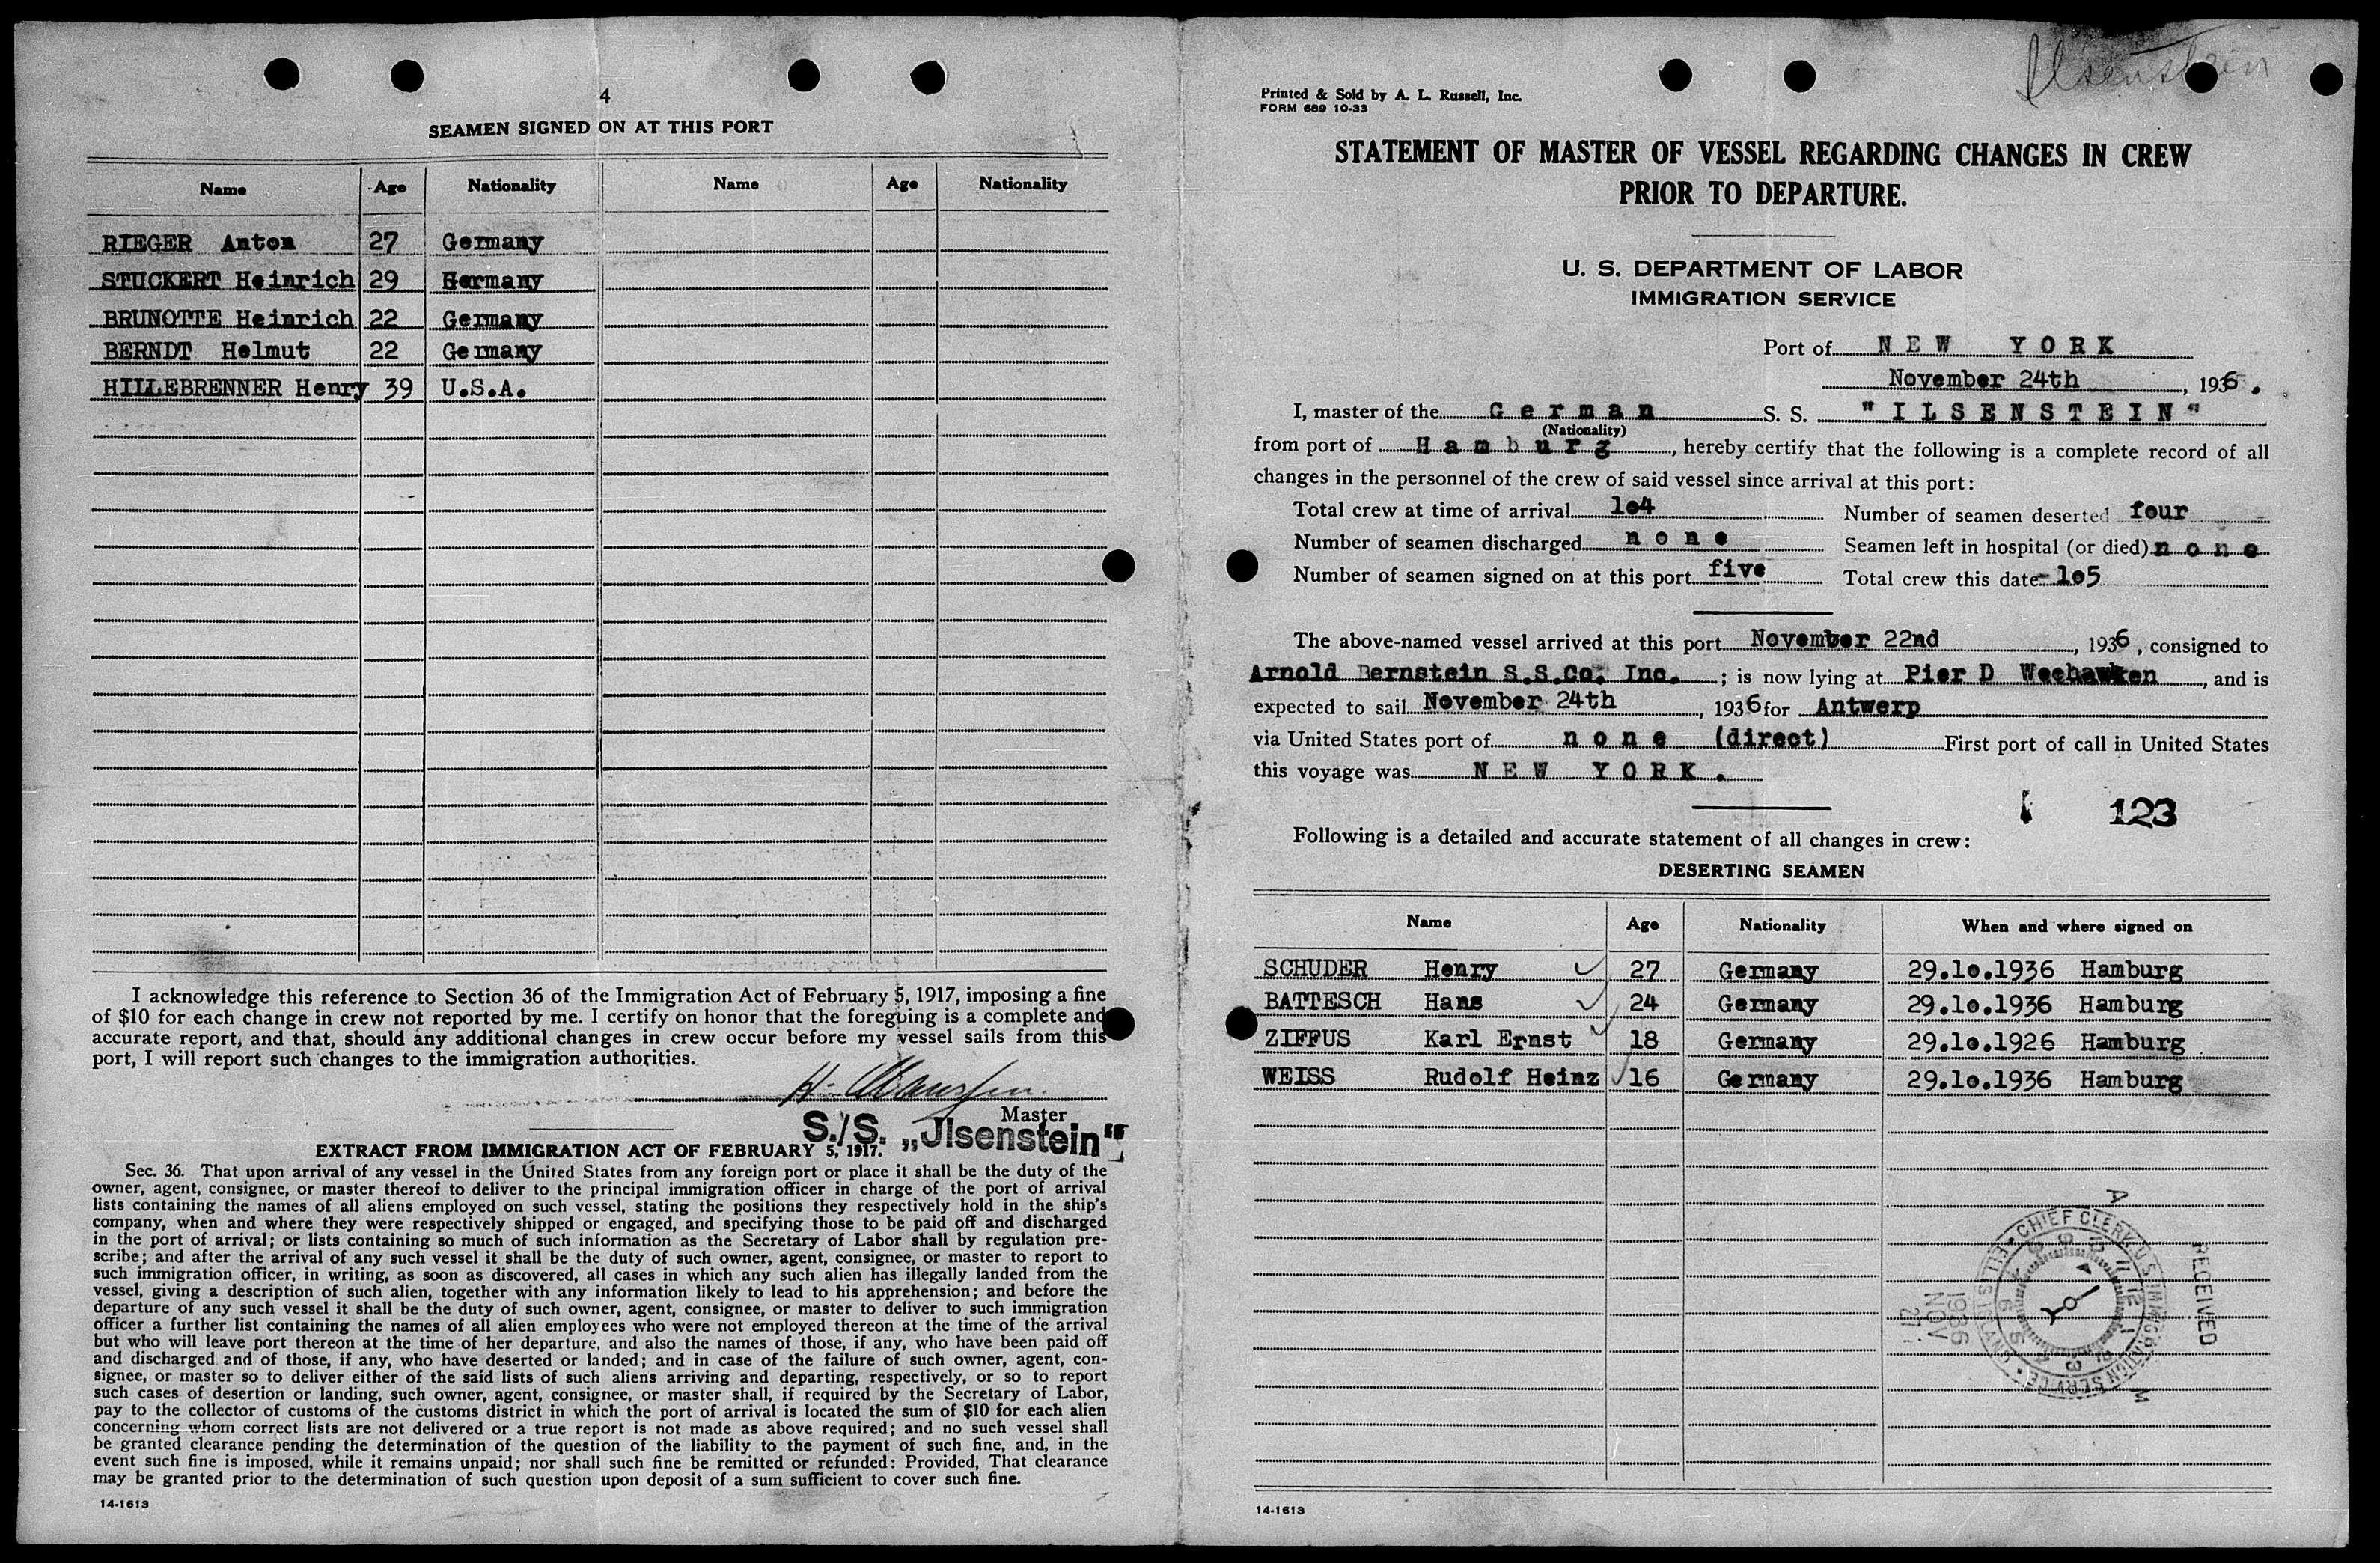 4
SEAMEN SIGNED ON AT THIS PORT
Name Age Nationality Name Age Nationality
RIEGER Anton 27 Germany
STUCKERT Heinrich 29 Germany
BRUNOTTE Heinrich 22 Germany
BERNDT Helmut 22 Germany
HILLEBRENNER Henry 39 U.S.A.
I acknowledge this reference to Section 36 of the Immigration Act of February 5, 1917, imposing a fine
of $10 for each change in crew not reported by me. I certify on honor that the foregoing is a complete and
accurate report, and that, should any additional changes in crew occur before my vessel sails from this
port, I will report such changes to the immigration authorities.
H.
Master
S./S. „Jlsenstein“
EXTRACT FROM IMMIGRATION ACT OF FEBRUARY 5, 1917.
Sec. 36. That upon arrival of any vessel in the United States from any foreign port or place it shall be the duty of the
owner, agent, consignee, or master thereof to deliver to the principal immigration officer in charge of the port of arrival
lists containing the names of all aliens employed on such vessel, stating the positions they respectively hold in the ship's
company, when and where they were respectively shipped or engaged, and specifying those to be paid off and discharged
in the port of arrival; or lists containing so much of such information as the Secretary of Labor shall by regulation pre-
scribe; and after the arrival of any such vessel it shall be the duty of such owner, agent, consignee, or master to report to
such immigration officer, in writing, as soon as discovered, all cases in which any such alien has illegally landed from the
vessel, giving a description of such alien, together with any information likely to lead to his apprehension; and before the
departure of any such vessel it shall be the duty of such owner, agent, consignee, or master to deliver to such immigration
officer a further list containing the names of all alien employees who were not employed thereon at the time of the arrival
but who will leave port thereon at the time of her departure, and also the names of those, if any, who have been paid off
and discharged and of those, if any, who have deserted or landed; and in case of the failure of such owner, agent, con-
signee, or master so to deliver either of the said lists of such aliens arriving and departing, respectively, or so to report
such cases of desertion or landing, such owner, agent, consignee, or master shall, if required by the Secretary of Labor,
pay to the collector of customs of the customs district in which the port of arrival is located the sum of $10 for each alien
concerning whom correct lists are not delivered or a true report is not made as above required; and no such vessel shall
be granted clearance pending the determination of the question of the liability to the payment of such fine, and, in the
event such fine is imposed, while it remains unpaid; nor shall such fine be remitted or refunded: Provided, That clearance
may be granted prior to the determination of such question upon deposit of a sum sufficient to cover such fine.
14-1613
Ilsenstein
Printed & Sold by A. L. Russell, Inc.
FORM 689 10-33
STATEMENT OF MASTER OF VESSEL REGARDING CHANGES IN CREW
PRIOR TO DEPARTURE.
U. S. DEPARTMENT OF LABOR
IMMIGRATION SERVICE
Port of NEW YORK
November 24th, 1936.
I, master of the German S. S. "ILSENSTEIN"
(Nationality)
from port of Hamburg, hereby certify that the following is a complete record of all
changes in the personnel of the crew of said vessel since arrival at this port:
Total crew at time of arrival 1o4 Number of seamen deserted four
Number of seamen discharged none Seamen left in hospital (or died) none
Number of seamen signed on at this port five Total crew this date 1o5
The above-named vessel arrived at this port November 22nd, 1936, consigned to
Arnold Bernstein S.S.Co. Inc. ; is now lying at Pier D Weehawken, and is
expected to sail November 24th, 1936 for Antwerp
via United States port of none (direct) First port of call in United States
this voyage was NEW YORK.
123
Following is a detailed and accurate statement of all changes in crew:
DESERTING SEAMEN
Name Age Nationality When and where signed on
SCHUDER Henry ✓ 27 Germany 29.1o.1936 Hamburg
BATTESCH Hans ✓ 24 Germany 29.1o.1936 Hamburg
ZIFFUS Karl Ernst ✓ 18 Germany 29.1o.1926 Hamburg
WEISS Rudolf Heinz ✓ 16 Germany 29.1o.1936 Hamburg
RECEIVED
CHIEF CLERK U.S. IMMIGRATION SERVICE • ELLIS ISLAND •
A M
1936
NOV
14-1613